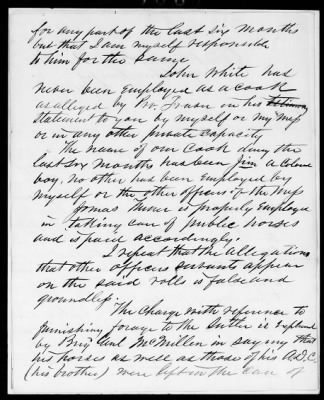 for any part of the last six months
but that I am myself responsible
to him for the same
John White has
never been employed as a cook
as alleged by Mr. Fraser in his
statement to you by myself or my mess
or in any other private capacity
The name of our Cook during the
last six months has been Jim a Colored
boy, no other had been employed by
myself or the other officers of the Mess
Jonas Turner is properly employed
in taking care of public horses
and is paid accordingly.
I repeat that the allegations
that other officers servants appear
on the said rolls is false and
groundless.
The Charge with reference to
furnishing forage to the Sutler is explained
by Brig Genl McMillen in saying that
his horses as well as those of his A.D.C.
(his brother) were kept in the care of